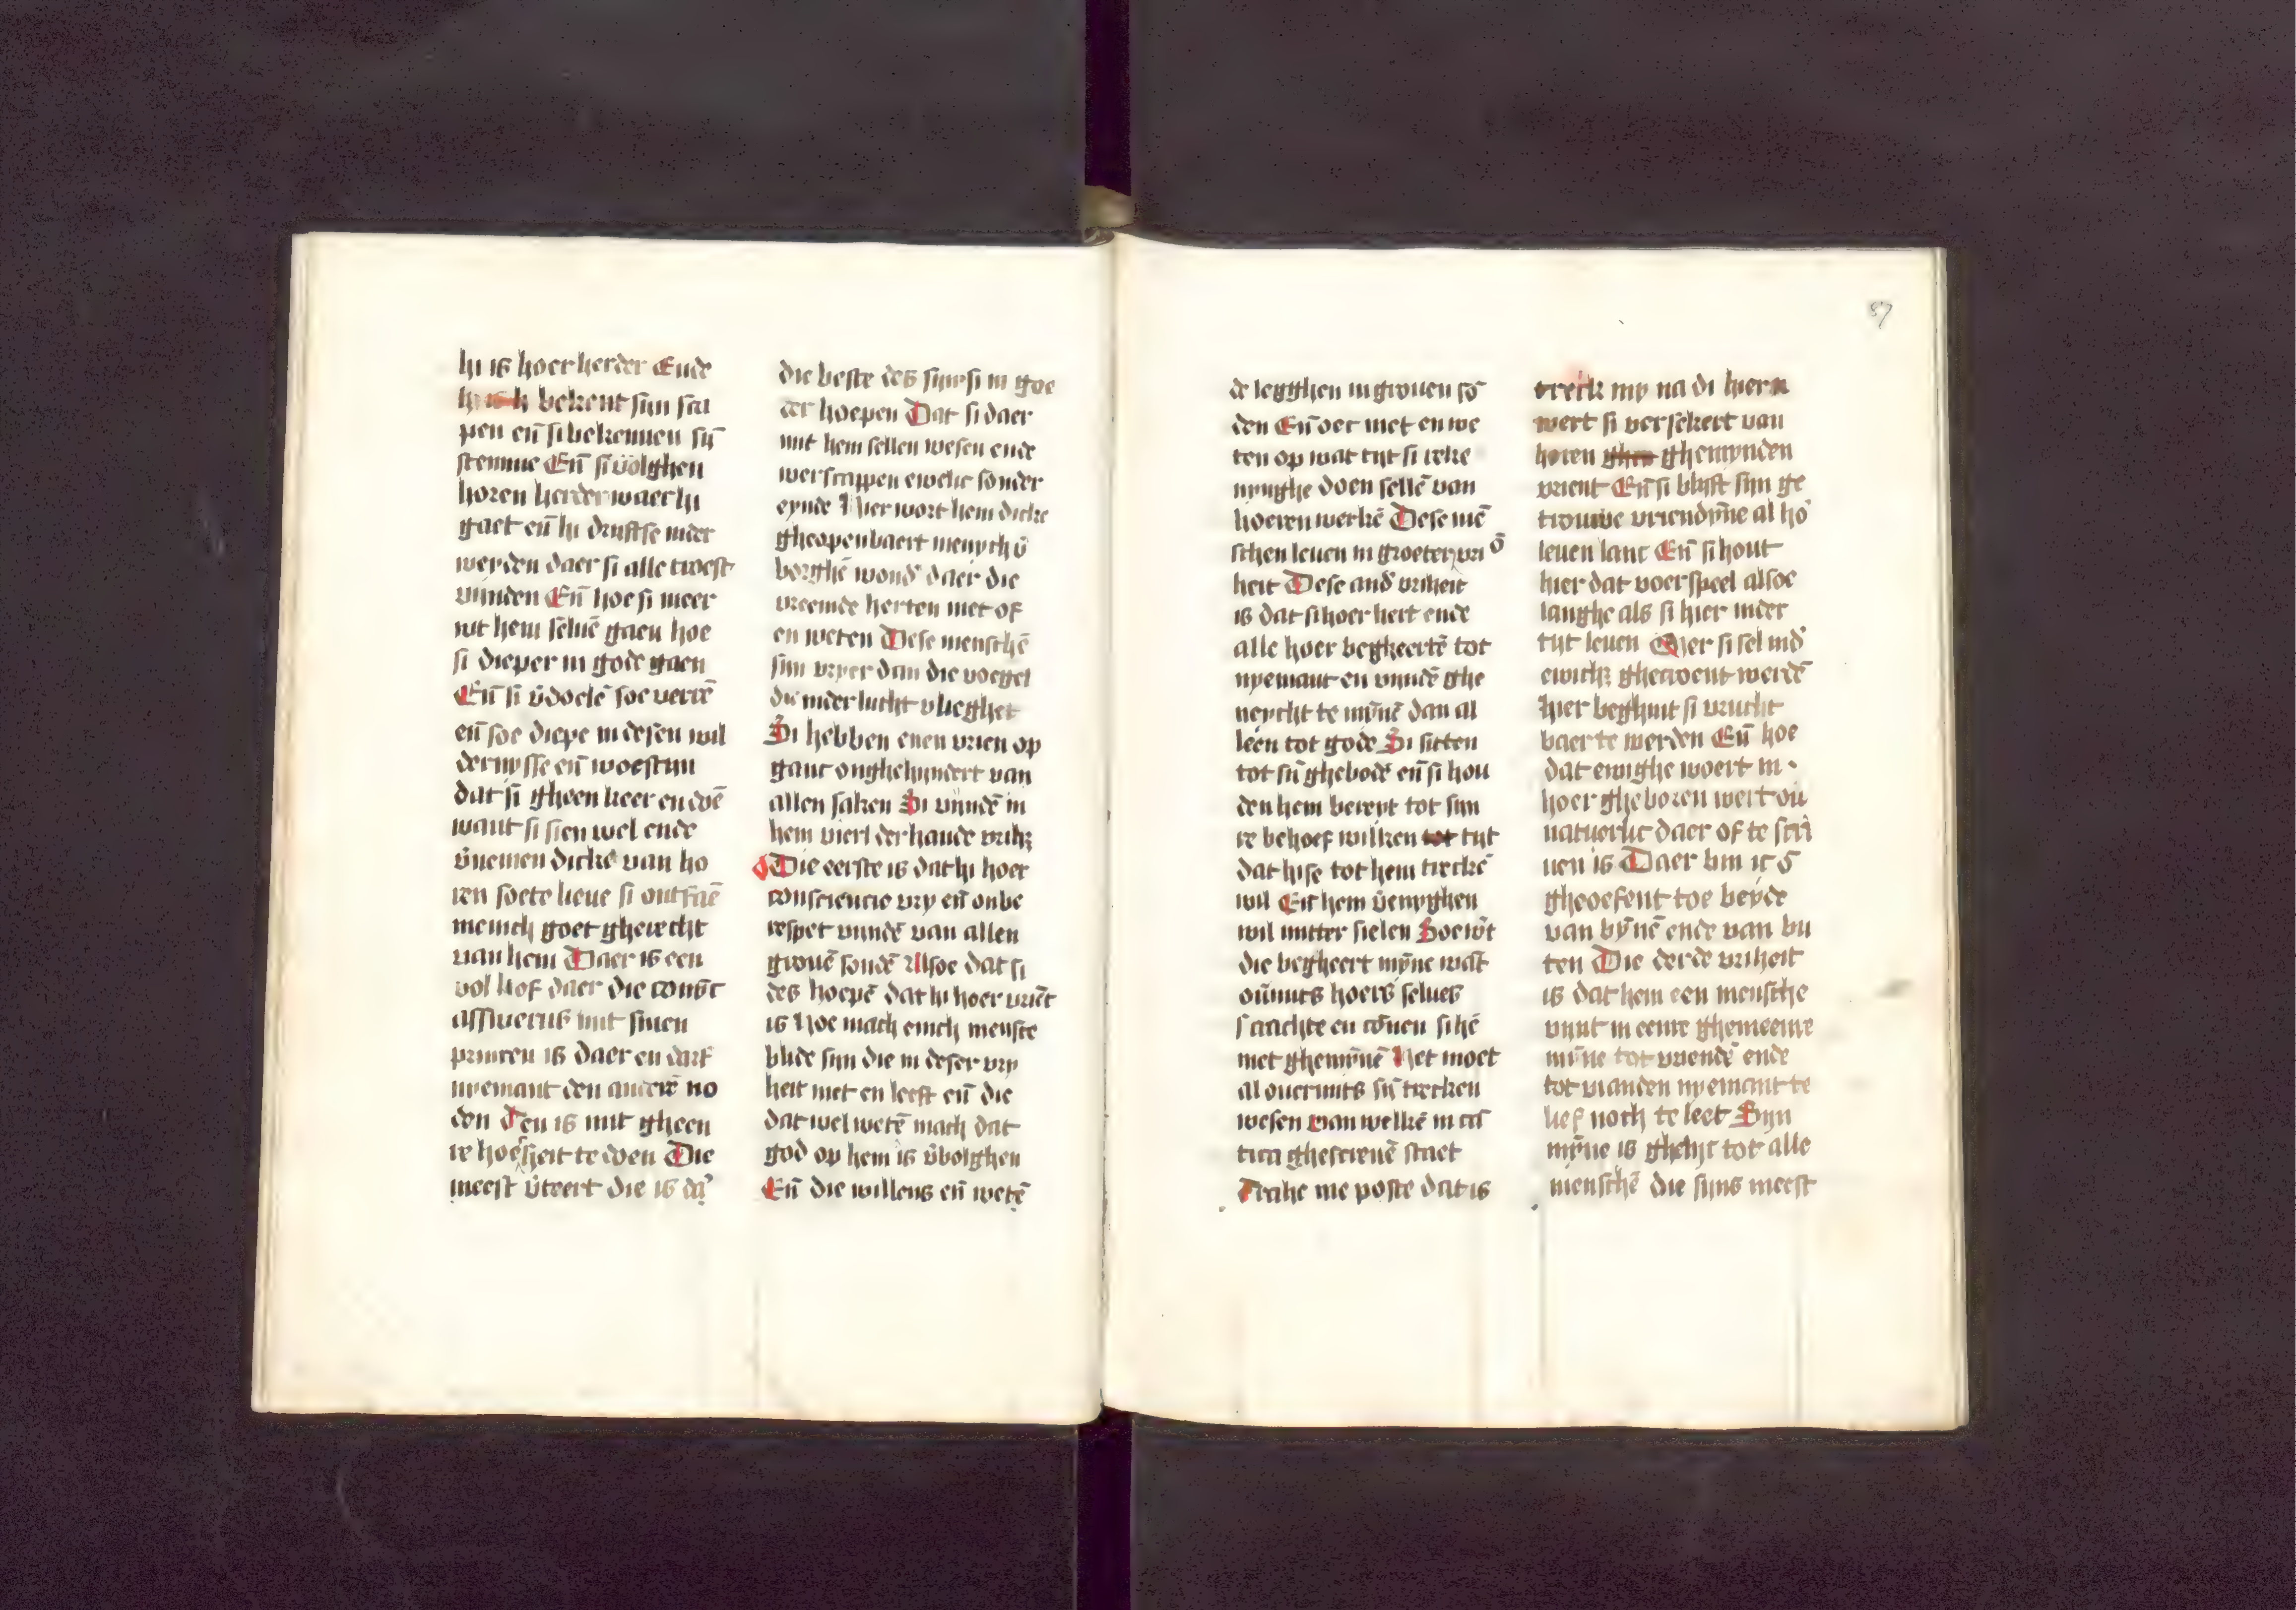 hi is hoer herder Ende
hi bekent sijn sca
pen eñ si bekennen sijn̄
stemme Eñ si volghen
horen herder waer hi
gaet eñ hi drijftse inder
werden daer si alle troest
vinden Eñ hoe si meer
wt hem seluē gaen hoe
si dieper in gode gaen
Eñ si v̄doelē soe verrē
eñ soe diepe in desen wil
dernysse eñ woestijn
dat si gheen keer en doē
want si sien wel ende
v̄nemen dicke van ho
ren soete lieue si ontfaē
menich goet gherecht
van hem Daer is een
vol hof daer die coninc
assuerus mit sinen
princen is daer en darf
nyemant den anderē no
den Ten is mit gheen
re hoesheit te doen Die
meest v̄teert die is da͛
die beste des sijn si in goe
der hoepen Dat si daer
mit hem sellen wesen ende
werscappen ewelic sonder
eynde Hier wort hem dicke
gheopenbaert menych v̄
borghē wond͛ daer die
vreemde herten niet of
en weten Dese menschē
sijn vryer dan die voegel
die inder lucht vlieghet
Si hebben enen vrien op
ganc onghehindert van
allen saken Si vindē in
hem vierl derhande vrihꝫ
Die eerste is dat hi hoer
consciencie vry eñ onbe
respet vindē van allen
grouē sondē Alsoe dat si
des hoepē dat hi hoer vriēt
is Hoe mach enich mensce
blide sijn die in deser vry
heit niet en leeft eñ die
dat wel wetē mach dat
god op hem is v̄bolghen
Eñ die willens eñ wetē
de legghen in grouen sō
den Eñ oec niet en we
ten op wat tijt si reke
nynghe doen sellē van
hoeren werkē Dese mē
schen leuen in groeter vri
heit Dese and͛ vriheit
is dat si hoer hert ende
alle hoer begheertē tot
nyemant en vindē ghe
neycht te mȳnē dan al
leen tot gode Si sitten
tot sijn̄ ghebodē eñ si hou
den hem bereyt tot sijn
re behoef wilken tot tijt
dat hise tot hem treckē
wil Eñ hem v̄enyghen
wil mitter sielen Soe w͛t
die begheert mȳne want
ouͥmits hoers selues
craachte en cōnen si hē
niet ghemȳnē Het moet
al ouermits sijn̄ trecken
wesen van welkē in cā
tica ghescreuē staet
Trahe me poste dat is
treck my na di hier in
wert si versekert van
horen ghen ghemynden
vrient Eñ si blijft sijn ge
trouwe vriendȳne al ho͛
leuen lanc Eñ si hout
hier dat voerspeel alsoe
langhe als si hier inder
tijt leuen Mer si sel ind͛
ewichꝫ ghecroent werdē
Hier beghint si vrucht
baer te werden Eñ hoe
dat ewighe woert in
hoer gheboren wert on̄
natuerlic daer of te scri
uen is Daer bin ic
gheoefent toe beyde
van bȳnē ende van bu
ten Die derde vriheit
is dat hem een mensche
vint in eenre ghemeenre
mȳne tot vriendē ende
tot vianden nyemant te
lief noch te leet Sijn
mȳne is ghelijc tot alle
menschē die sijns meest
87